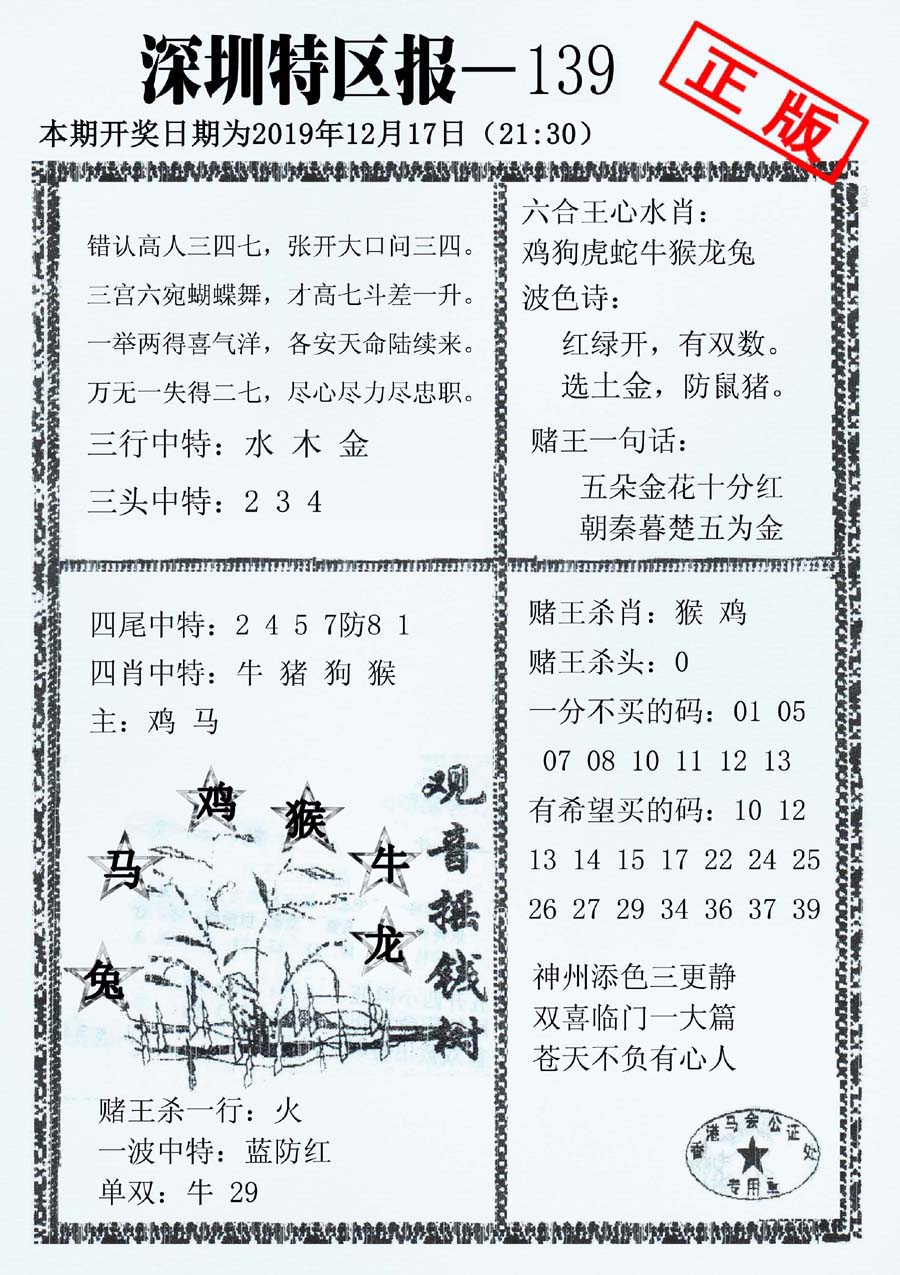 深圳特区报—139
正版
本期开奖日期为2019年12月17日（21:30）
错认高人三四七，张开大口问三四。
三宫六宛蝴蝶舞，才高七斗差一升。
一举两得喜气洋，各安天命陆续来。
万无一失得二七，尽心尽力尽忠职。
三行中特：水 木 金
三头中特：2 3 4
六合王心水肖：
鸡狗虎蛇牛猴龙兔
波色诗：
红绿开，有双数。
选土金，防鼠猪。
赌王一句话：
五朵金花十分红
朝秦暮楚五为金
四尾中特：2 4 5 7防8 1
四肖中特：牛 猪 狗 猴
主：鸡 马
观音摇钱树
鸡
猴
马
牛
龙
兔
赌王杀一行：火
一波中特：蓝防红
单双：牛 29
赌王杀肖：猴 鸡
赌王杀头：0
一分不买的码：01 05
07 08 10 11 12 13
有希望买的码：10 12
13 14 15 17 22 24 25
26 27 29 34 36 37 39
神州添色三更静
双喜临门一大篇
苍天不负有心人
香港马会公证处
专用章